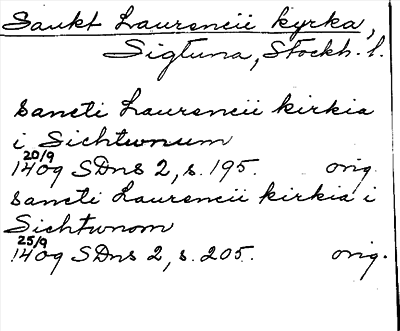 Sankt Laurencii kyrka,
Sigtuna, Stockh. l.
sancti Laurencii kirkia
i Sichtwnum
20/9
1409 SDns 2, s. 195. orig.
sancti Laurencii kirkia i
Sichtwnom
25/9
1409 SDns 2, s. 205. orig.